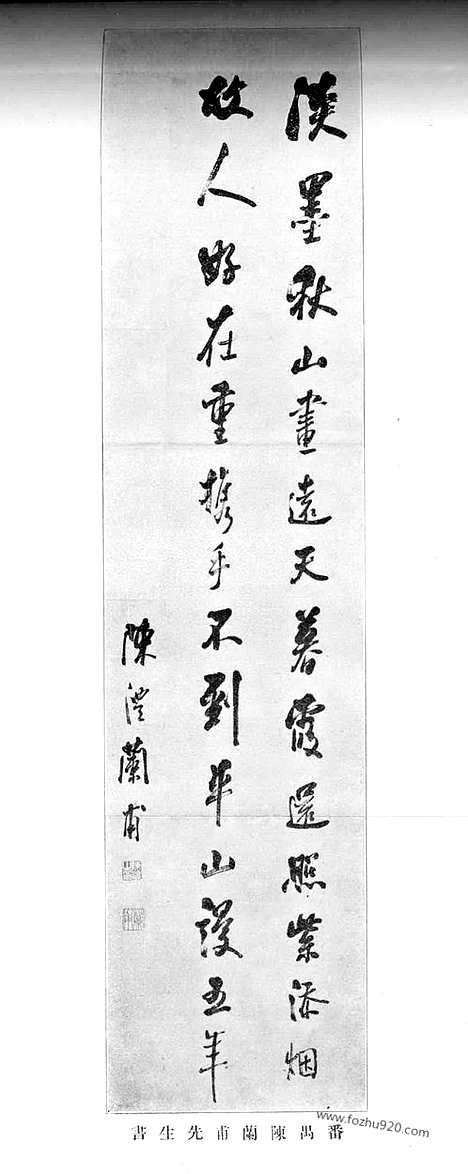 淡墨秋山畫遠天暮霞還照紫添烟
故人好在重携手不到平山謾五年
陳澧蘭甫
番禺陳蘭甫先生書
www.fozhu920.com